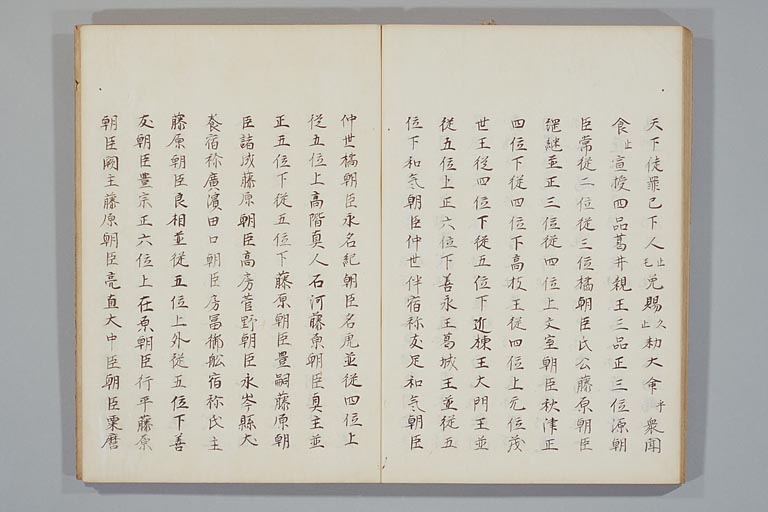 天下徒罪已下人止毛免賜久止勅大命乎衆聞
食止宣授四品葛井親王三品正三位源朝
臣常従二位従三位橘朝臣氏公藤原朝臣
継並正三位従四位上文室朝臣秋津正
四位下従四位下高枝王従四位上元位茂
世王従四位下従五位下近棟王大門王並
従五位上正六位下善永王葛城王並従五
位下和気朝臣仲世伴宿祢友足和気朝臣
仲世橘朝臣永名紀朝臣名虎並従四位上
従五位上高階真人石河藤原朝臣真主並
正五位下従五位下藤原朝臣豊嗣藤原朝
臣諸成藤原朝臣高房菅野朝臣永岑縣犬
養宿祢廣濱田口朝臣房冨御船宿祢氏主
藤原朝臣良相並従五位上外従五位下善
友朝臣豊宗正六位上在原朝臣行平藤原
朝臣関主藤原朝臣亮直大中臣朝臣粟麿